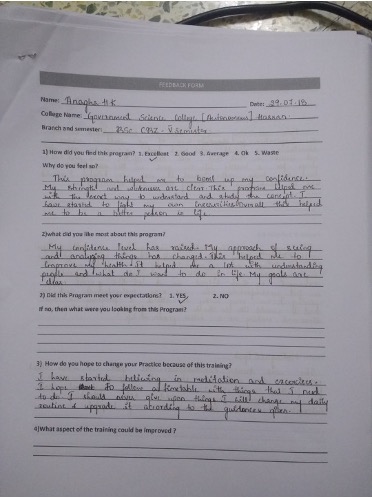 FEEDBACK FORM
Name: Anagha H K Date: 29.01.19
College Name: Government Science College [Autonomous] Hassan
Branch and semester: BSc CBZ - V Semester
1) How did you find this program? 1. Excellent 2. Good 3. Average 4. Ok 5. Waste
Why do you feel so?
This program helped me to boost up my confidence.
My strength and weakness are clear This program helped me
with the way to understand and study the concept I
have started to fight my own insecurities Overall this helped
me to be a better person in life
2)what did you like most about this program?
My confidence level has raised. My approach of seeing
and analysing things has changed. This helped me to
improve my health. It helped me a lot with understanding
people and what do I want to do in life. My goals are
clear
2) Did this Program meet your expectations? 1. YES 2. NO
If no, then what were you looking from this Program?
3) How do you hope to change your Practice because of this training?
I have started believing in meditation and excercises.
I hope to follow a timetable with things that I need
to do I should never give upon things I will change my daily
routine & upgrade it according to the guidences given.
4)What aspect of the training could be improved ?